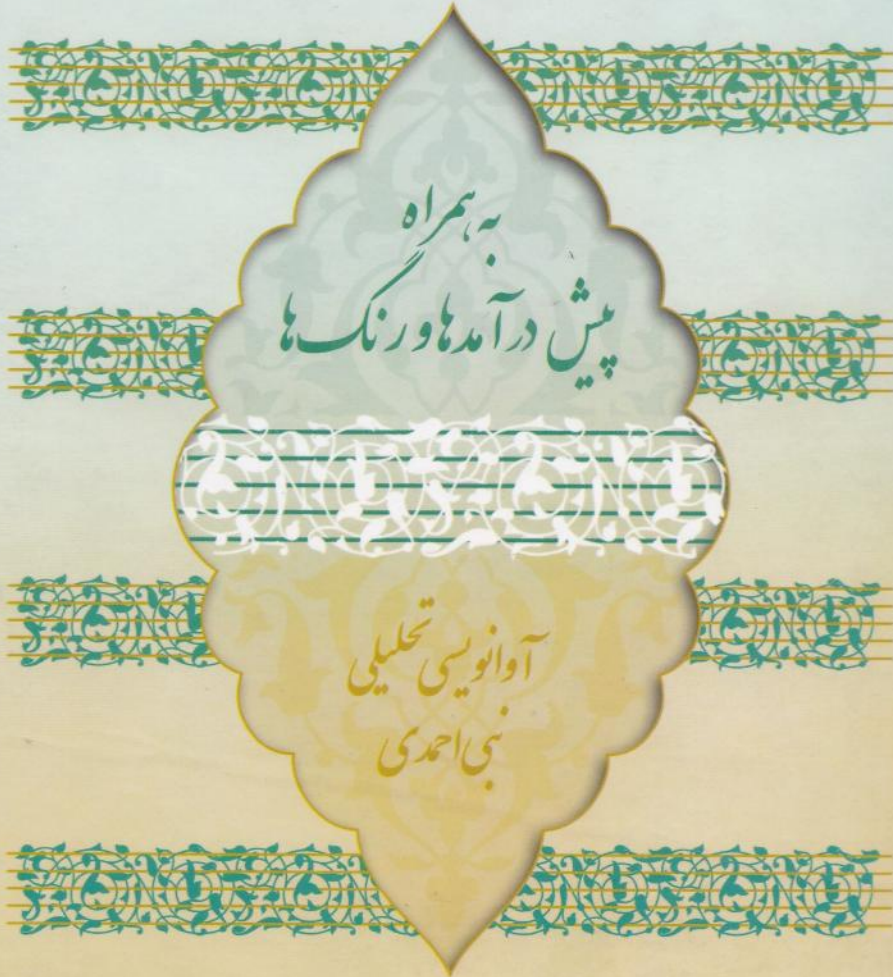 به همراه
پیش درآمدها و رنگ‌ها
آوانویسی تحلیلی
نبی احمدی